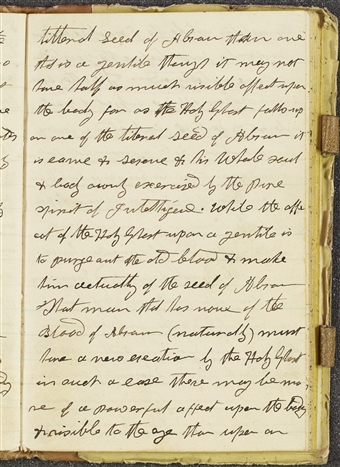 litteral seed of Abram than one
that is a gentile though it may not
have half as much visible affect upon
the body for as the Holy Ghost falls up
on one of the literal seed of Abram it
is calme & serene & his whole soul
& body ownly exercised by the pure
spirit of Intelligence. while the affe
ect of the Holy Ghost upon a gentile is
to purge out the old blood & make
him actually of the seed of Abram
That man that has none of the
Blood of Abram (naturally) must
have a new creation by the Holy Ghost
in such a case there may be mo
re of a powerful affect upon the body
& visible to the eye than upon an